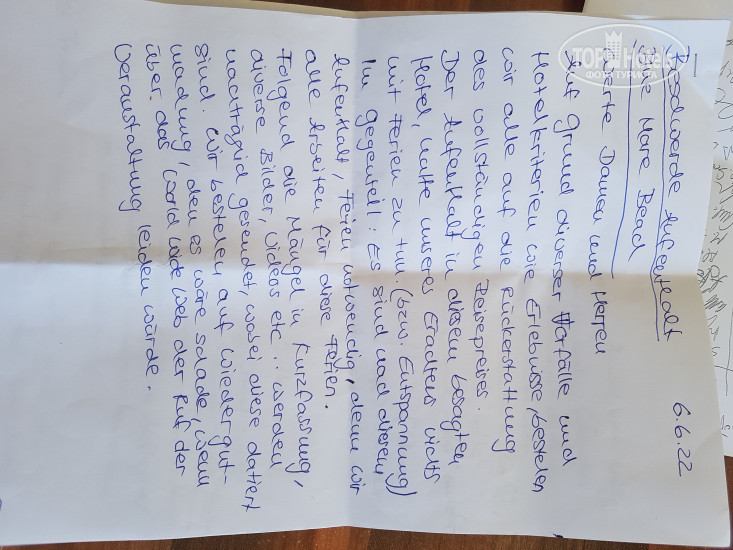 Beschwerde Aufenthalt 6.6.22
Mare Beach
Werte Damen und Herren
Auf Grund diverser Vorfälle und
Hotelkriterien wie Erlebnisse, bestehen
wir alle auf die Rückerstattung
des vollständigen Reisepreises.
Der Aufenthalt in diesem besagten
Hotel, hatte unseres Erachtens nichts
mit Ferien zu tun. (bzw. Entspannung)
Im Gegenteil: Es sind nach diesem
Aufenthalt, Ferien notwendig, denn wir
alle arbeiten für diese Ferien.
Folgend die Mängel in Kurzfassung,
diverse Bilder, Videos etc.: werden
nachträglich gesendet, wobei diese datiert
sind. Wir bestehen auf Wiedergut-
machung, denn es wäre schade, wenn
über das World Wide Web der Ruf der
Veranstaltung leiden würde.
TOP Hotels
ФОТО ТУРИСТА